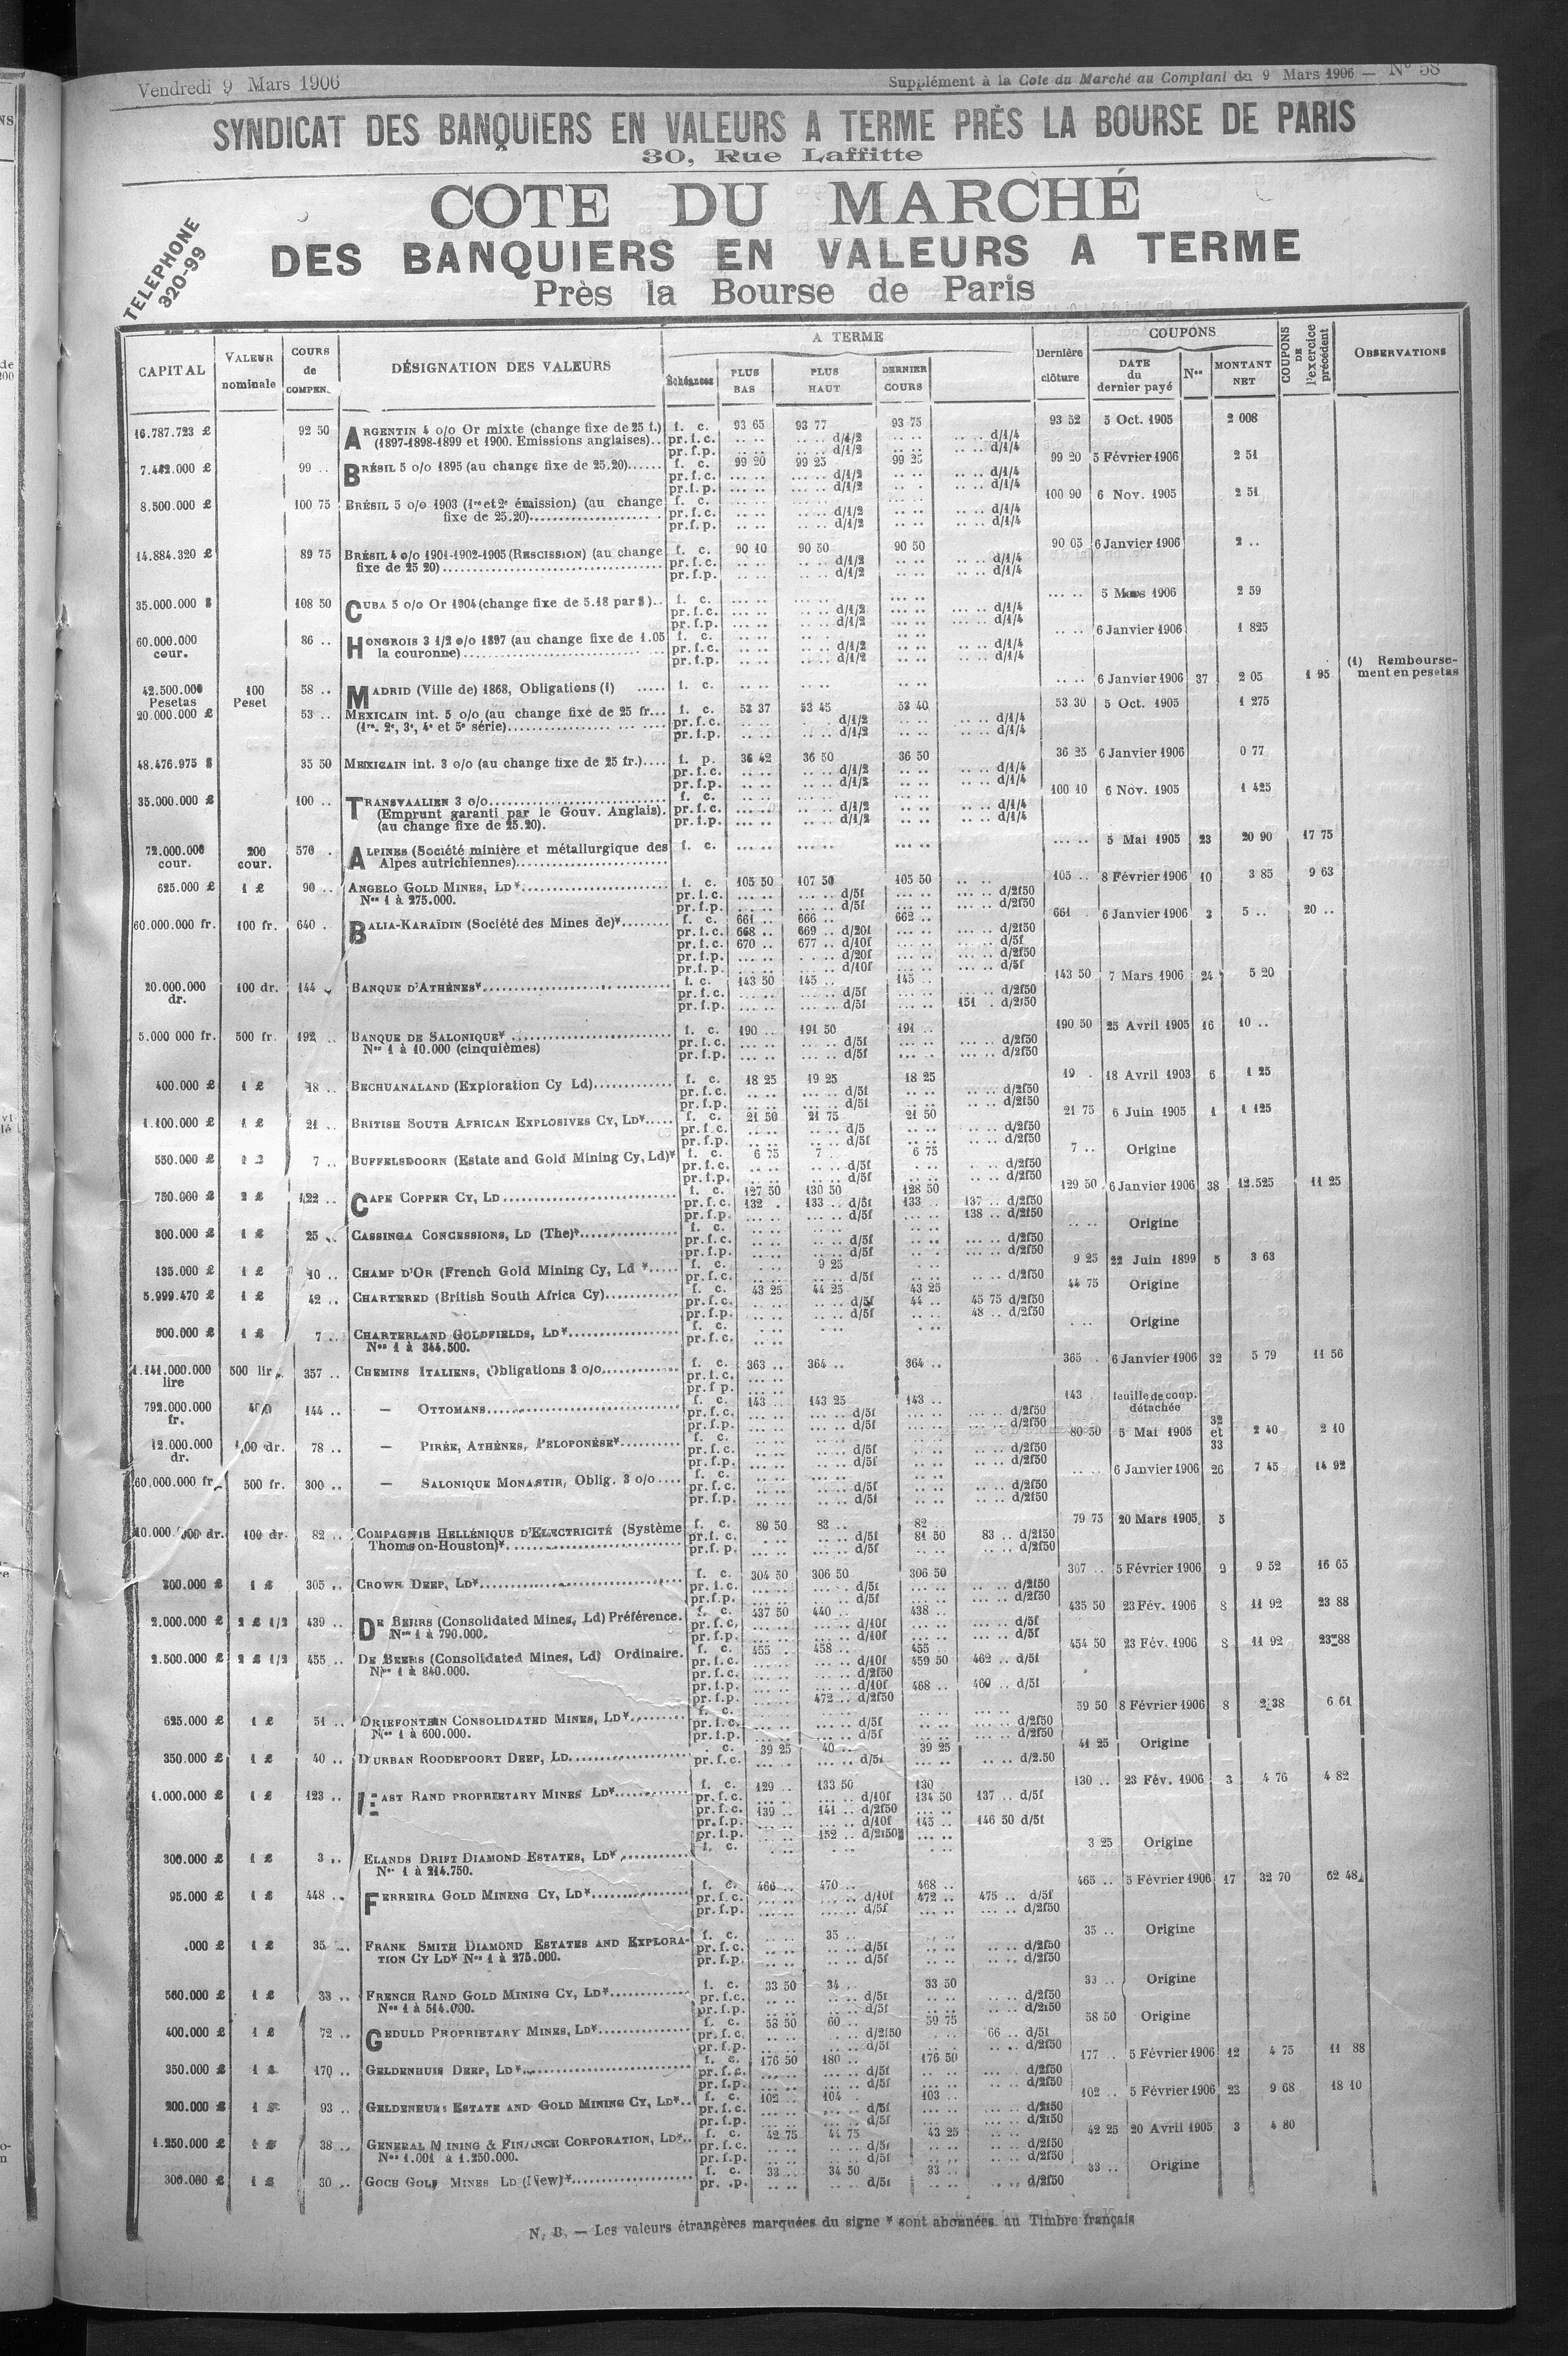 Vendredi 9 Mars 1906
Supplément à la Cote du Marché au Comptant du 9 Mars 1906 — N° 58
SYNDICAT DES BANQUIERS EN VALEURS A TERME PRÈS LA BOURSE DE PARIS
30, Rue Laffitte
TELEPHONE
320-99
COTE DU MARCHÉ
DES BANQUIERS EN VALEURS A TERME
Près la Bourse de Paris
CAPITAL
VALEUR nominale
COURS de COMPEN.
DÉSIGNATION DES VALEURS
A TERME
Échéances
PLUS BAS
PLUS HAUT
DERNIER COURS
Dernière clôture
COUPONS
DATE du dernier payé
Nos
MONTANT NET
COUPONS DE l'exercice précédent
OBSERVATIONS
16.787.723 £ 92 50 ARGENTIN 4 o/o Or mixte (change fixe de 25 f.) f. c. 93 65 93 77 93 75 93 52 5 Oct. 1905 2 008
(1897-1898-1899 et 1900. Emissions anglaises).. pr.f.c. d/1/2 d/1/4
pr.f.p. d/1/2 d/1/4
7.442.000 £ 99 .. BRÉSIL 5 o/o 1895 (au change fixe de 25.20)...... f. c. 99 20 99 25 99 25 99 20 5 Février 1906 2 51
pr.f.c. d/1/2 d/1/4
pr.f.p. d/1/2 d/1/4
8.500.000 £ 100 75 BRÉSIL 5 o/o 1903 (1re et 2e émission) (au change f. c. 100 90 6 Nov. 1905 2 51
fixe de 25.20) pr.f.c. d/1/2 d/1/4
pr.f.p. d/1/2 d/1/4
14.884.320 £ 89 75 BRÉSIL 4 o/o 1901-1902-1905 (RESCISSION) (au change f. c. 90 10 90 50 90 50 90 05 6 Janvier 1906 2 ..
fixe de 25 20) pr.f.c. d/1/2 d/1/4
pr.f.p. d/1/2 d/1/4
35.000.000 $ 108 50 CUBA 5 o/o Or 1904 (change fixe de 5.18 par $).. f. c. 5 Mars 1906 2 59
pr.f.c. d/1/2 d/1/4
pr.f.p. d/1/2 d/1/4
60.000.000 cour. 86 .. HONGROIS 3 1/2 o/o 1897 (au change fixe de 1.05 f. c. 6 Janvier 1906 1 825
la couronne) pr.f.c. d/1/2 d/1/4
pr.f.p. d/1/2 d/1/4
42.500.000 Pesetas 100 Peset 58 .. MADRID (Ville de) 1868, Obligations (1) ..... f. c. 6 Janvier 1906 37 2 05 1 95 (1) Remboursement en pesetas
20.000.000 £ 53 .. MEXICAIN int. 5 o/o (au change fixe de 25 fr... f. c. 53 37 53 45 53 40 53 30 5 Oct. 1905 1 275
(1re, 2e, 3e, 4e et 5e série) pr.f.c. d/1/2 d/1/4
pr.f.p. d/1/2 d/1/4
48.476.975 $ 35 50 MEXICAIN int. 3 o/o (au change fixe de 25 fr.).... f. p. 36 42 36 50 36 50 36 25 6 Janvier 1906 0 77
pr.f.c. d/1/2 d/1/4
pr.f.p. d/1/2 d/1/4
35.000.000 £ 100 .. TRANSVAALIEN 3 o/o f. c. 100 10 6 Nov. 1905 1 425
(Emprunt garanti par le Gouv. Anglais). pr.f.c. d/1/2 d/1/4
(au change fixe de 25.20). pr.f.p. d/1/2 d/1/4
72.000.000 cour. 200 cour. 570 . ALPINES (Société minière et métallurgique des f. c. 5 Mai 1905 23 20 90 17 75
Alpes autrichiennes)
625.000 £ 1 £ 90 .. ANGELO GOLD MINES, LD* f. c. 105 50 107 50 105 50 105 .. 8 Février 1906 10 3 85 9 63
Nos 1 à 275.000. pr.f.c. d/5f d/2f50
pr.f.p. d/5f d/2f50
60.000.000 fr. 100 fr. 640 . BALIA-KARAÏDIN (Société des Mines de)* f. c. 661 .. 666 .. 662 .. 661 . 6 Janvier 1906 3 5 .. 20 ..
pr.f.c. 668 .. 669 .. d/20f d/2f50
pr.f.c. 670 .. 677 .. d/10f d/5f
pr.f.p. d/20f d/2f50
pr.f.p. d/10f d/5f
20.000.000 dr. 100 dr. 144 .. BANQUE D'ATHÈNES* f. c. 143 50 145 .. 145 .. 143 50 7 Mars 1906 24 5 20
pr.f.c. d/5f d/2f50
pr.f.p. d/5f 151 . d/2f50
5.000 000 fr. 500 fr. 192 .. BANQUE DE SALONIQUE* f. c. 190 .. 191 50 191 .. 190 50 25 Avril 1905 16 10 ..
Nos 1 à 10.000 (cinquièmes) pr.f.c. d/5f d/2f50
pr.f.p. d/5f d/2f50
400.000 £ 1 £ 18 .. BECHUANALAND (Exploration Cy Ld) f. c. 18 25 19 25 18 25 19 . 18 Avril 1903 6 1 25
pr.f.c. d/5f d/2f50
pr.f.p. d/5f d/2f50
1.100.000 £ 1 £ 21 .. BRITISH SOUTH AFRICAN EXPLOSIVES CY, LD* f. c. 21 50 21 75 21 50 21 75 6 Juin 1905 1 1 125
pr.f.c. d/5 d/2f50
pr.f.p. d/5f d/2f50
550.000 £ 7 .. BUFFELSDOORN (Estate and Gold Mining Cy, Ld)* f. c. 6 75 7 .. 6 75 7 .. Origine
pr.f.c. d/5f d/2f50
pr.f.p. d/5f d/2f50
750.000 £ 2 £ 122 .. CAPE COPPER CY, LD f. c. 127 50 130 50 128 50 129 50 6 Janvier 1906 38 12.525 11 25
pr.f.c. 132 . 133 .. d/5f 133 .. 137 .. d/2f50
pr.f.p. d/5f 138 .. d/2f50
300.000 £ 1 £ 25 .. CASSINGA CONCESSIONS, LD (The)* f. c. Origine
pr.f.c. d/5f d/2f50
pr.f.p. d/5f d/2f50
135.000 £ 1 £ 10 .. CHAMP D'OR (French Gold Mining Cy, Ld * f. c. 9 25 9 25 22 Juin 1899 5 3 63
pr.f.c. d/5f d/2f50
5.999.470 £ 1 £ 42 .. CHARTERED (British South Africa Cy) f. c. 43 25 44 25 43 25 44 75 Origine
pr.f.c. d/5f 44 .. 45 75 d/2f50
pr.f.p. d/5f 48 .. d/2f50
500.000 £ 1 £ 7 .. CHARTERLAND GOLDFIELDS, LD* f. c. Origine
Nos 1 à 344.500. pr.f.c.
1.141.000.000 lire 500 lir 357 .. CHEMINS ITALIENS, Obligations 3 o/o f. c. 363 .. 364 .. 364 .. 365 . 6 Janvier 1906 32 5 79 11 56
pr.f.c.
pr.f.p.
792.000.000 fr. 144 .. — OTTOMANS f. c. 143 .. 143 25 143 .. 143 . feuille de coup. détachée
pr.f.c. d/5f d/2f50
pr.f.p. d/5f d/2f50
12.000.000 dr. 100 dr. 78 .. — PIRÉE, ATHÈNES, PELOPONÈSE* f. c. 80 50 5 Mai 1905 32 et 33 2 40 2 10
pr.f.c. d/5f d/2f50
pr.f.p. d/5f d/2f50
60.000.000 fr. 500 fr. 300 .. — SALONIQUE MONASTIR, Oblig. 3 o/o f. c. 6 Janvier 1906 26 7 45 14 92
pr.f.c. d/5f d/2f50
pr.f.p. d/5f d/2f50
10.000.000 dr. 100 dr. 82 .. COMPAGNIE HELLÉNIQUE D'ELECTRICITÉ (Système f. c. 80 50 83 .. 82 .. 79 75 20 Mars 1905 5
Thomson-Houston)* pr.f.c. d/5f 81 50 83 .. d/2f50
pr.f.p. d/5f d/2f50
300.000 £ 1 £ 305 .. CROWN DEEP, LD* f. c. 304 50 306 50 306 50 307 .. 5 Février 1906 9 9 52 16 65
pr.f.c. d/5f d/2f50
pr.f.p. d/5f d/2f50
2.000.000 £ 2 £ 1/2 439 .. DE BEERS (Consolidated Mines, Ld) Préférence. f. c. 437 50 440 .. 438 .. 435 50 23 Fév. 1906 8 11 92 23 88
Nos 1 à 790.000. pr.f.c. d/10f d/5f
pr.f.p. d/10f d/5f
2.500.000 £ 2 £ 1/2 455 .. DE BEERS (Consolidated Mines, Ld) Ordinaire. f. c. 455 . 458 .. 455 .. 454 50 23 Fév. 1906 8 11 92 23 88
Nos 1 à 840.000. pr.f.c. d/10f 459 50 462 .. d/5f
pr.f.c. d/2f50
pr.f.p. d/10f 468 .. 460 .. d/5f
pr.f.p. 472 .. d/2f50
625.000 £ 1 £ 51 .. DRIEFONTEIN CONSOLIDATED MINES, LD* f. c. 59 50 8 Février 1906 8 2 38 6 61
Nos 1 à 600.000. pr.f.c. d/5f d/2f50
pr.f.p. d/5f d/2f50
350.000 £ 1 £ 40 .. DURBAN ROODEPOORT DEEP, LD . c. 39 25 40 .. 39 25 41 25 Origine
pr.f.c. d/5f d/2.50
1.000.000 £ 1 £ 123 .. EAST RAND PROPRIETARY MINES LD* f. c. 129 .. 133 50 130 130 .. 23 Fév. 1906 3 4 76 4 82
pr.f.c. d/10f 134 50 137 .. d/5f
pr.f.c. 139 .. 141 .. d/2f50
pr.f.p. d/10f 145 .. 146 50 d/5f
pr.f.p. 152 .. d/2f50
300.000 £ 1 £ 3 .. ELANDS DRIFT DIAMOND ESTATES, LD* f. c. 3 25 Origine
Nos 1 à 214.750.
95.000 £ 1 £ 448 .. FERREIRA GOLD MINING CY, LD* f. c. 466 .. 470 .. 468 .. 465 .. 5 Février 1906 17 32 70 62 48
pr.f.c. d/10f 472 .. 475 .. d/5f
pr.f.p. d/5f d/2f50
.000 £ 1 £ 35 .. FRANK SMITH DIAMOND ESTATES AND EXPLORA- f. c. 35 .. 35 .. Origine
TION CY LD* Nos 1 à 275.000. pr.f.c. d/5f d/2f50
pr.f.p. d/5f d/2f50
560.000 £ 1 £ 33 .. FRENCH RAND GOLD MINING CY, LD* f. c. 33 50 34 .. 33 50 33 .. Origine
Nos 1 à 514.000. pr.f.c. d/5f d/2f50
pr.f.p. d/5f d/2f50
400.000 £ 1 £ 72 .. GEDULD PROPRIETARY MINES, LD* f. c. 58 50 60 .. 59 75 58 50 Origine
pr.f.c. d/2f50 66 .. d/5f
pr.f.p. d/5f d/2f50
350.000 £ 1 £ 170 .. GELDENHUIS DEEP, LD* f. c. 176 50 180 .. 176 50 177 .. 5 Février 1906 12 4 75 11 88
pr.f.c. d/5f d/2f50
pr.f.p. d/5f d/2f50
200.000 £ 1 £ 93 .. GELDENHUIS ESTATE AND GOLD MINING CY, LD* f. c. 102 .. 104 103 .. 102 .. 5 Février 1906 23 9 68 18 10
pr.f.c. d/5f d/2f50
pr.f.p. d/5f d/2f50
1.250.000 £ 1 £ 38 .. GENERAL MINING & FINANCE CORPORATION, LD* f. c. 42 75 44 75 43 25 42 25 20 Avril 1905 3 4 80
Nos 1.001 à 1.250.000. pr.f.c. d/5f d/2f50
pr.f.p. d/5f d/2f50
300.000 £ 1 £ 30 .. GOCH GOLD MINES LD (New)* f. c. 33 .. 34 50 33 .. 33 .. Origine
pr. .p. d/5f d/2f50
N. B. — Les valeurs étrangères marquées du signe * sont abonnées au Timbre français